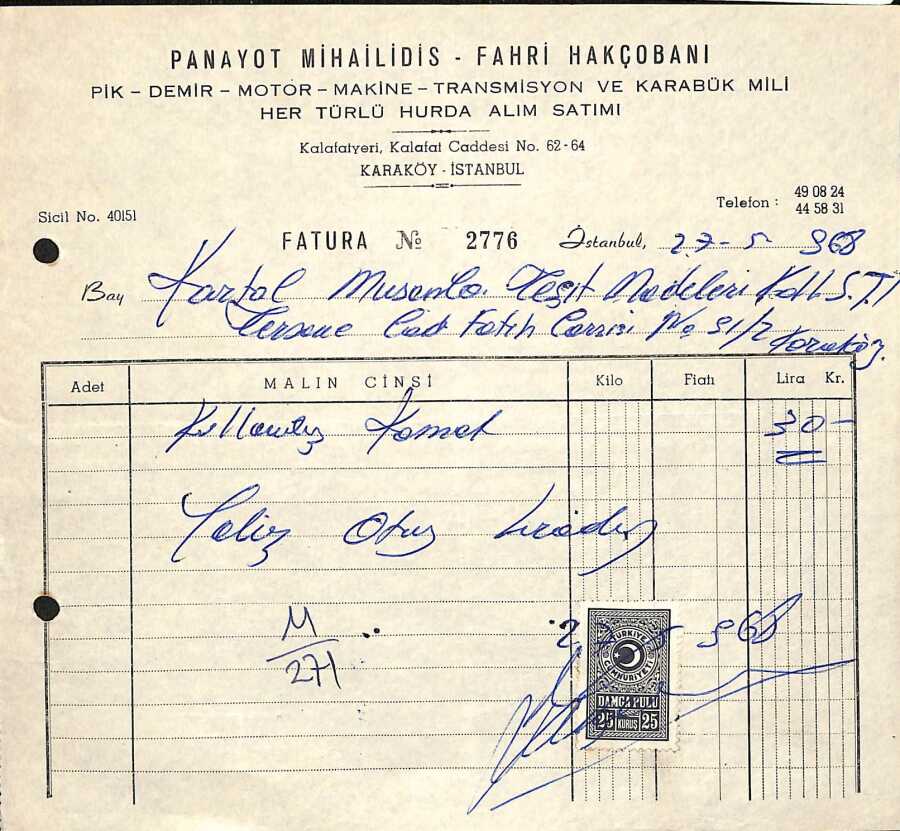 PANAYOT MİHAİLİDİS - FAHRİ HAKÇOBANI
PİK – DEMİR – MOTÖR – MAKİNE – TRANSMİSYON VE KARABÜK MİLİ
HER TÜRLÜ HURDA ALIM SATIMI
Kalafatyeri, Kalafat Caddesi No. 62-64
KARAKÖY - İSTANBUL
Telefon : 49 08 24
44 58 31
Sicil No. 40151
FATURA № 2776 İstanbul, 27-5-968
Bay Kartal Musamba Teşit Koll. Ş.T.İ
Tersane Cad Fatih Çarşısı No 91/2 Karaköy
Adet MALIN CİNSİ Kilo Fiatı Lira Kr.
Kullanılış 30-
Yalız Otuz Liradır
M
271
27-5-968
TÜRKİYE
CUMHURİYETİ
DAMGA PULU
25 KURUŞ 25